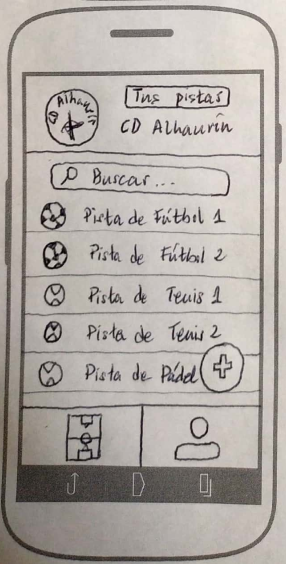 CD Alhaurín
Tus pistas
CD Alhaurín
Buscar...
Pista de Fútbol 1
Pista de Fútbol 2
Pista de Tenis 1
Pista de Tenis 2
Pista de Pádel